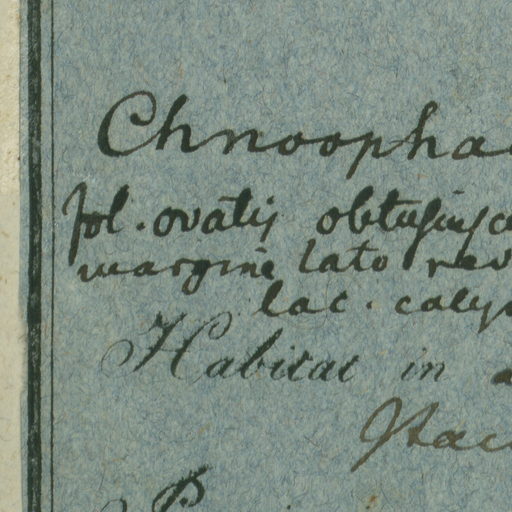 Chnoopha
fol. ovatis obtusiusc
margine lato rev
lac. calyc
Habitat in